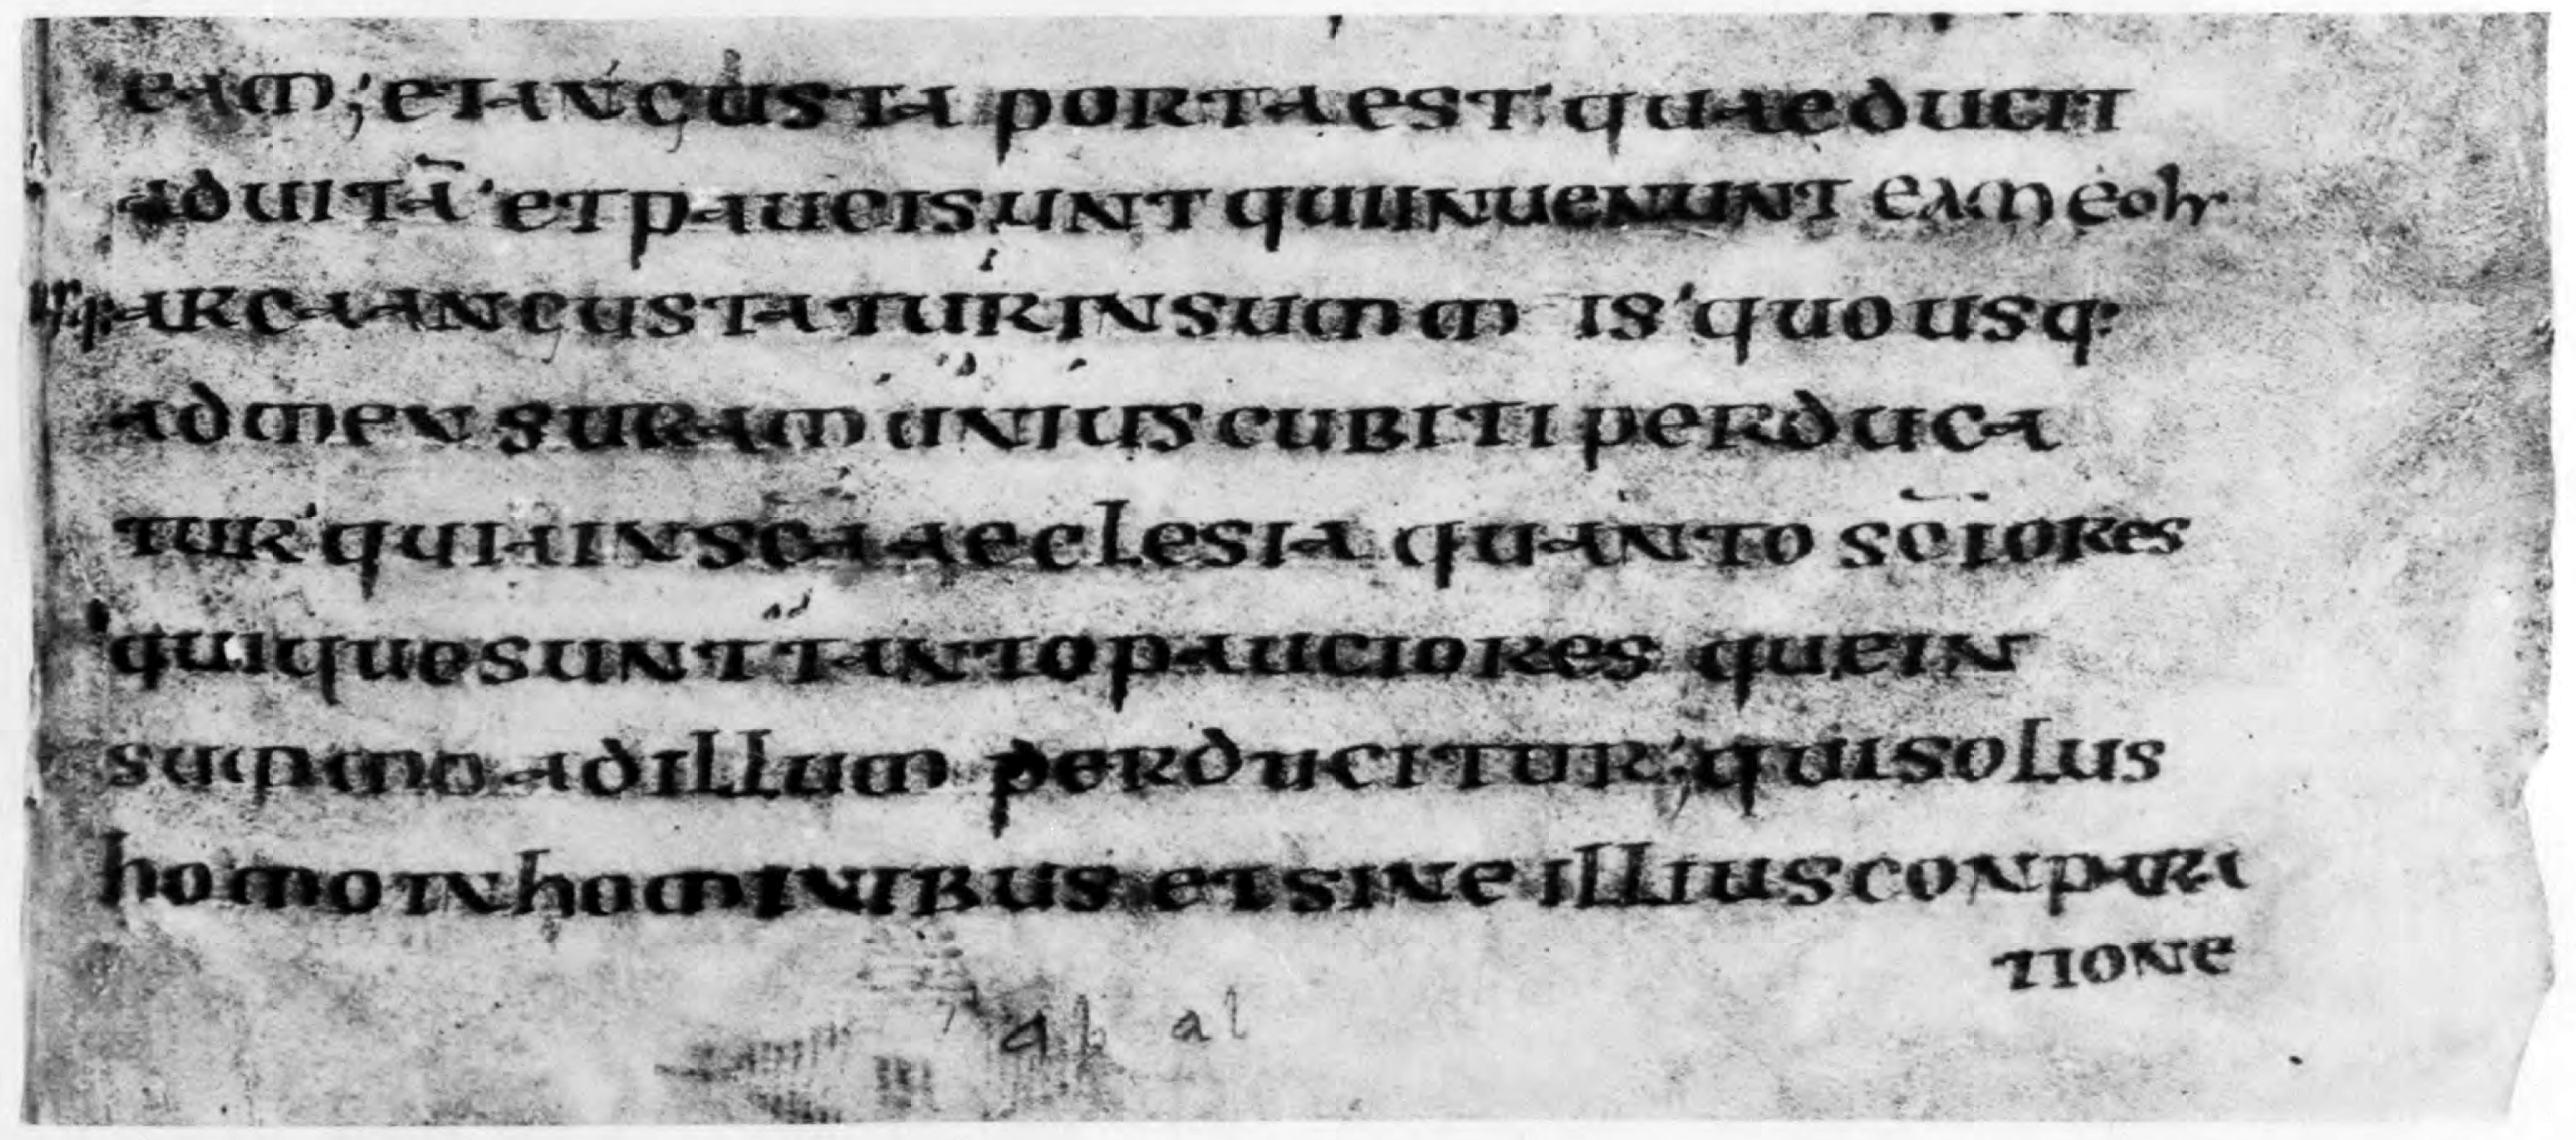 eam; et angusta porta est quae ducit
ad uitā et pauci sunt qui inueniunt eam eoh
usq: arca angustatur in summ is quo usq:
ad mensuram unius cubiti perduca
tur quia in sc̄a aeclesia quanto sc̄iores
quique sunt tanto pauciores que in
summo ad illum perducitur; qui solus
homo in hominibus et sine illius conpara
tione
ap al